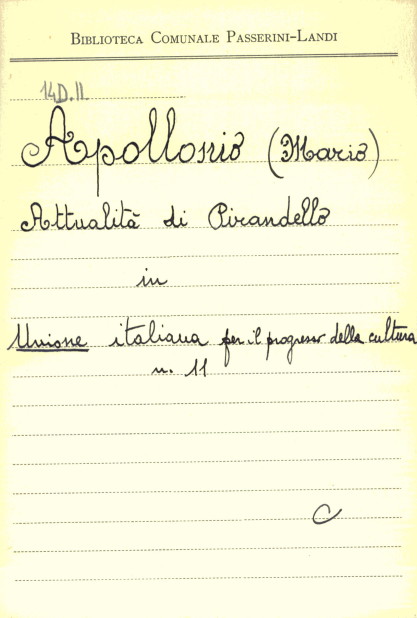 BIBLIOTECA COMUNALE PASSERINI-LANDI
14D.II.
Apollonio (Mario)
Attualità di Pirandello
in
Unione italiana per il progresso della cultura
n. 11
C